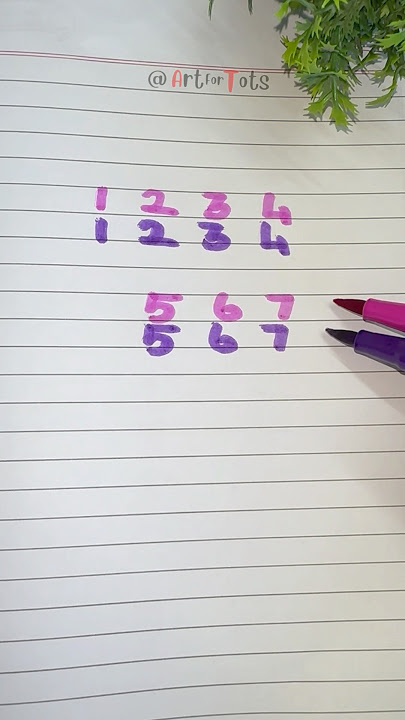 @ArtforTots
1 2 3 4
1 2 3 4
5 6 7
5 6 7